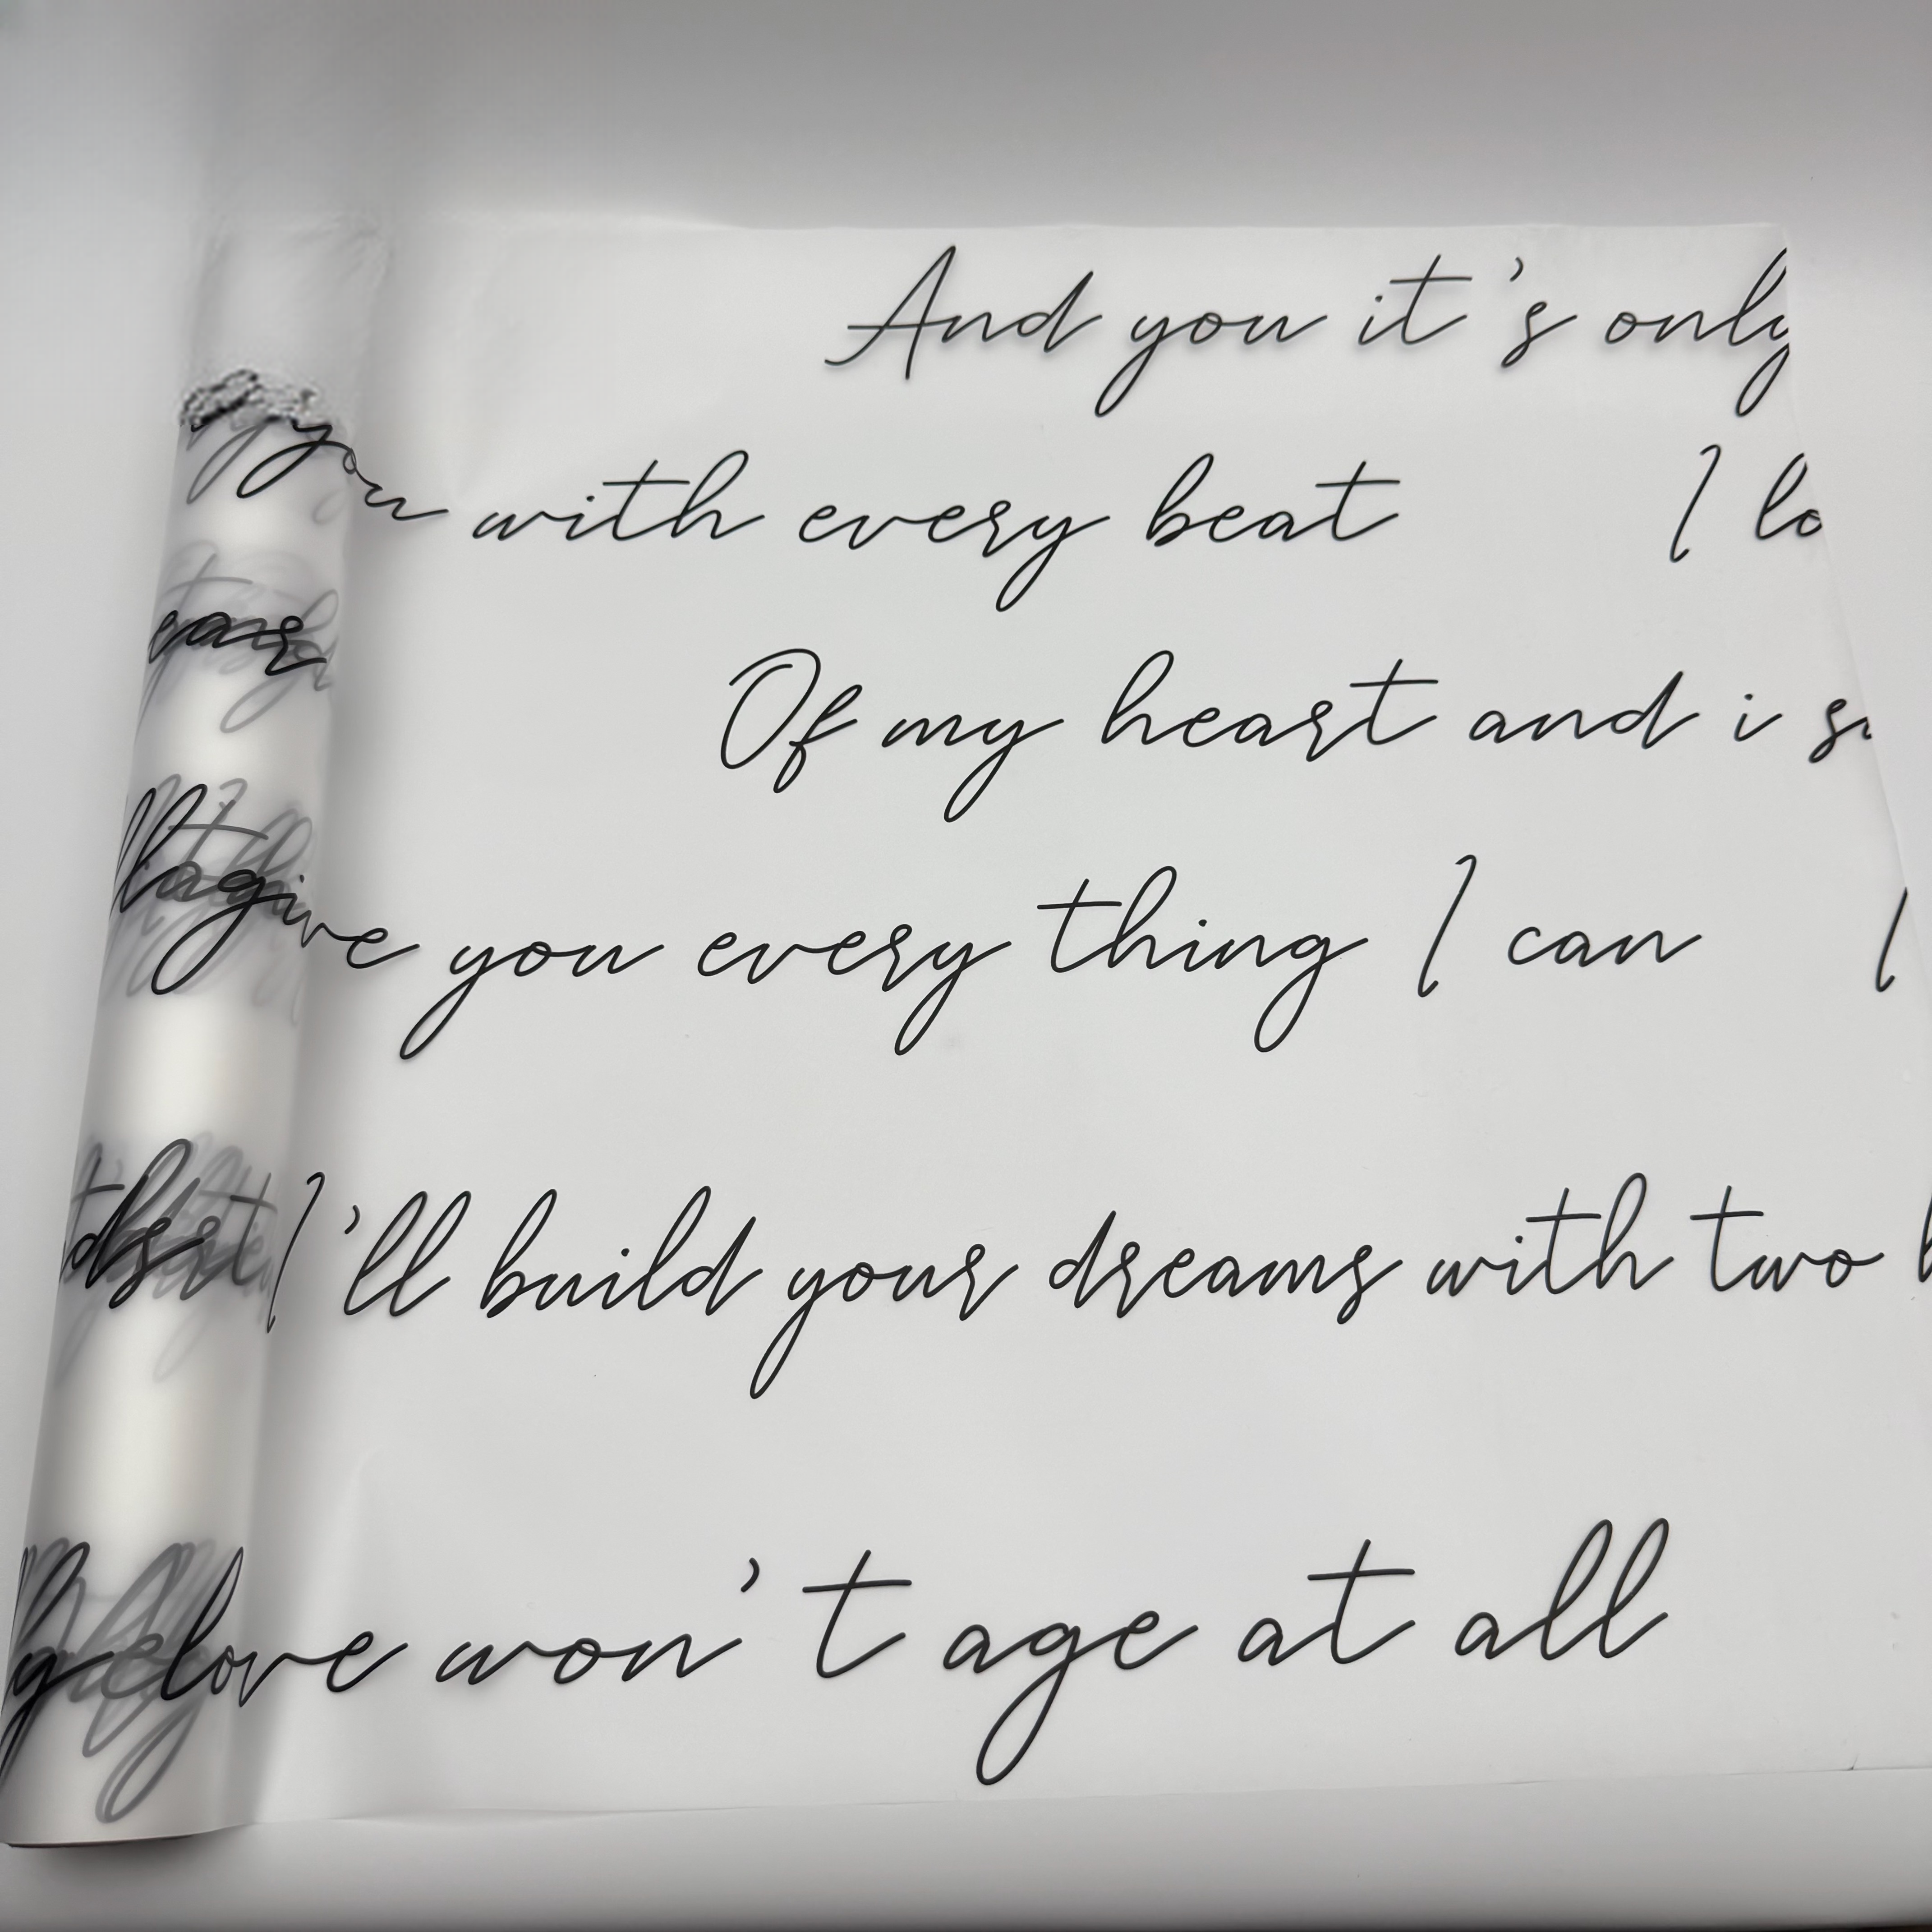 And you it's only
you with every beat I lo
Of my heart and i s
give you every thing I can I
I'll build your dreams with two
love won't age at all